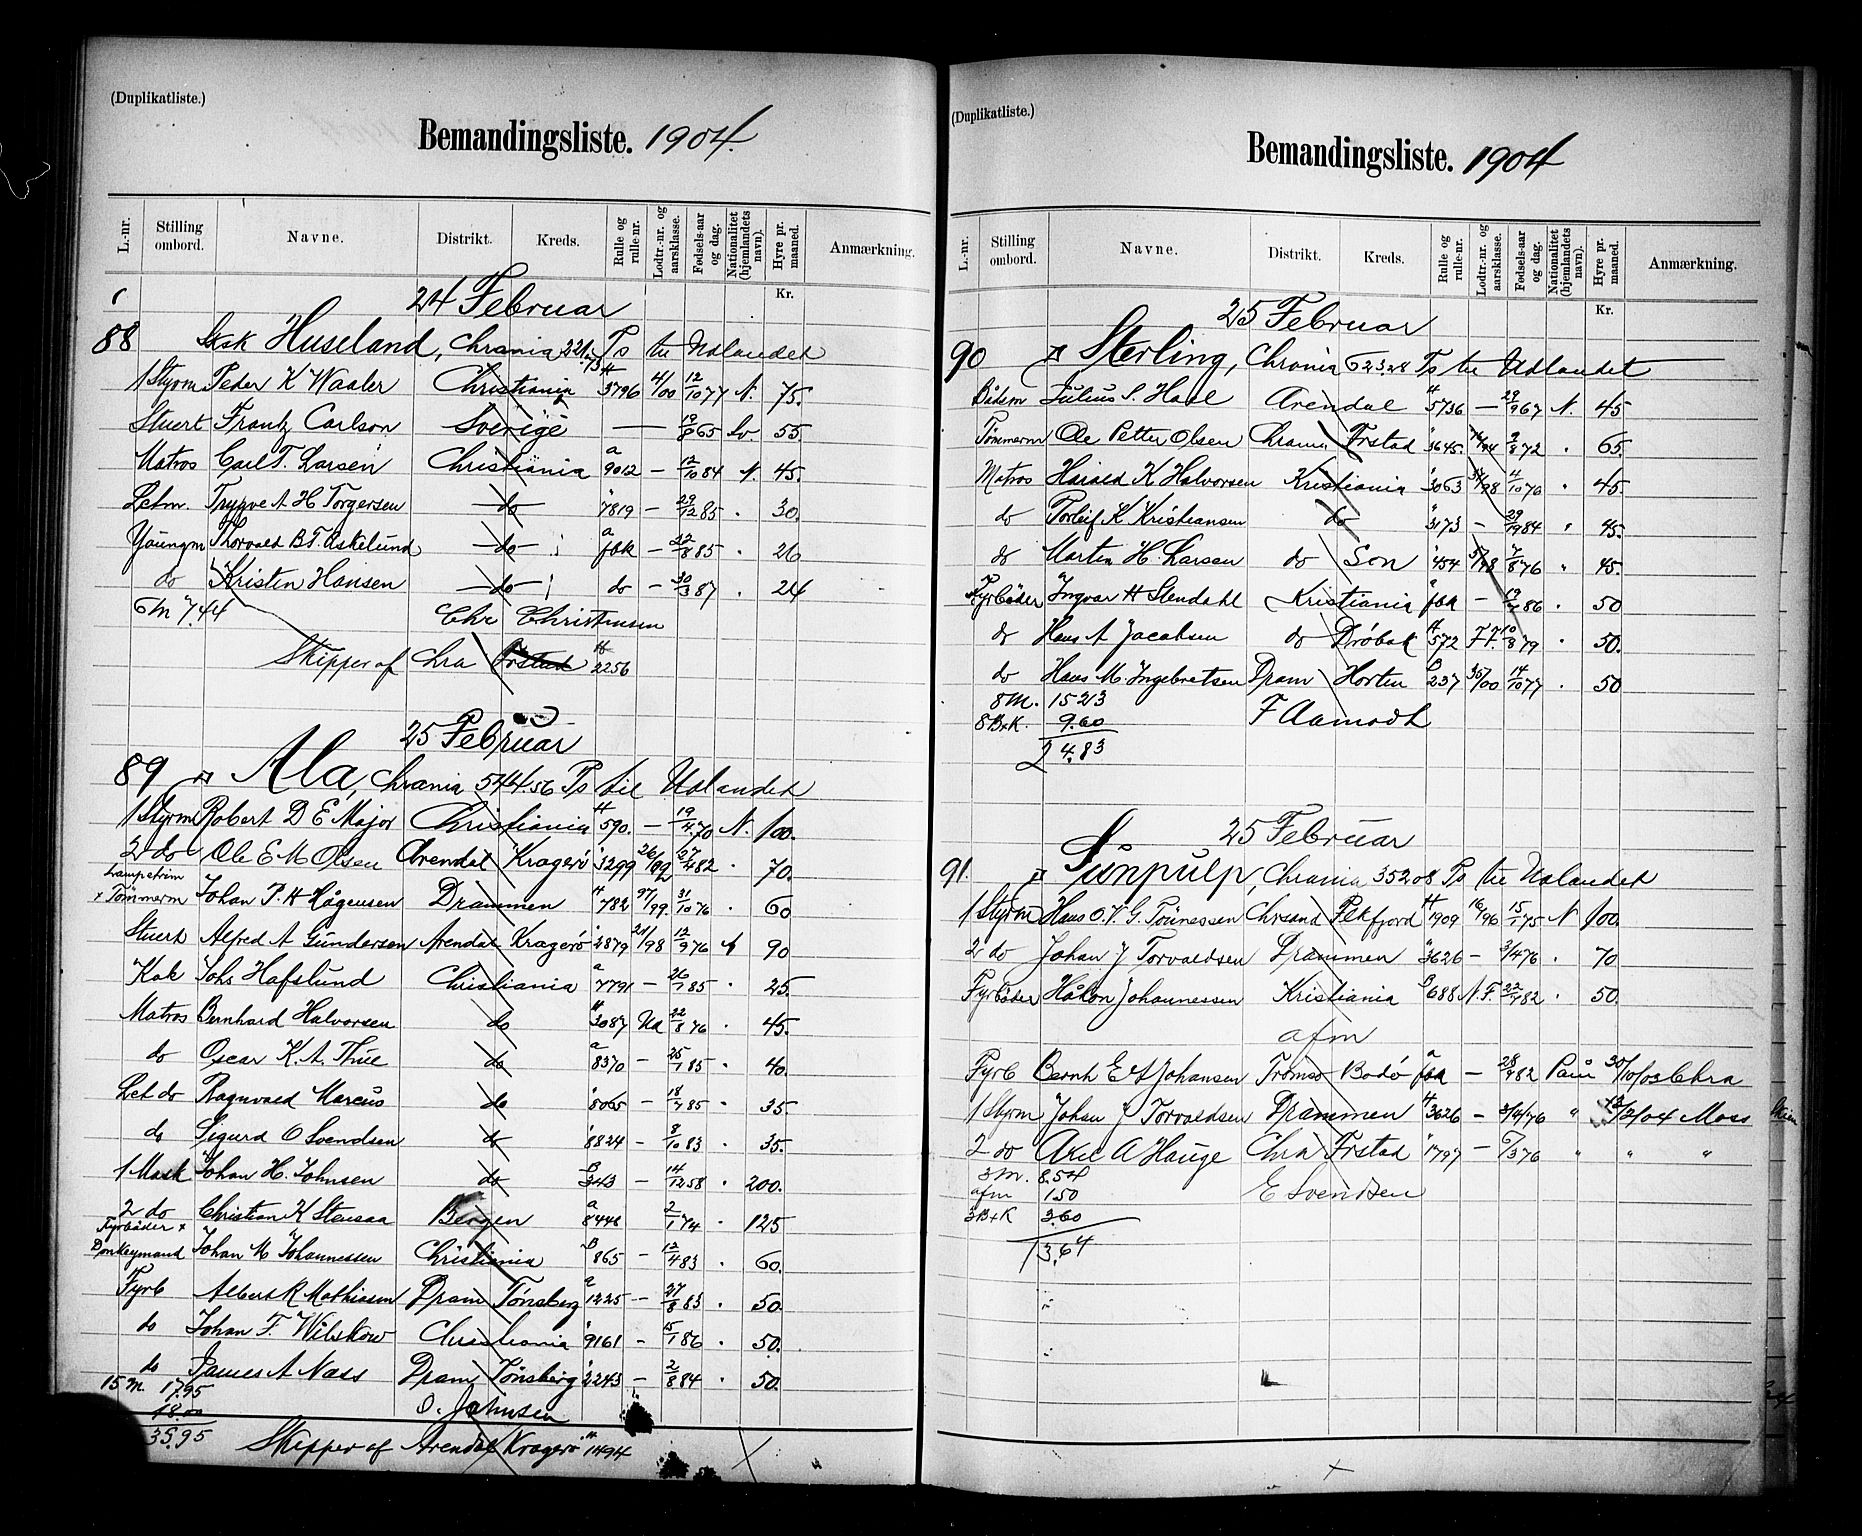 (Duplikatliste.)
Bemandingsliste. 1904.
L.-nr. Stilling ombord. Navne. Distrikt. Kreds. Rulle og rulle-nr. Lodtr.-nr. og aarsklasse. Fødsels-aar og dag. Nationalitet (hjemlandets navn). Hyre pr. maaned. Anmærkning.
Kr.
24 Februar
88 Huseland, Chrania 221.73 Ts til Udlandet
1 Styrm Peder K Waaler Christiania H 3796 4/00 12/10 77 N. 75.
Stuert Frantz Carlson Sverige — 19/8 65 Sv 55
Matros Carl T. Larsen Christiania a 9012 – 12/10 84 N. 45.
Letm. Trygve A H Torgersen do " 7819 – 29/12 85 . 30.
Youngm Thorvald B. F. Askelund do a fbk – 22/8 85 . 26
do Kristen Hansen do do – 30/3 87 . 24
6 M 7.44 Chr Christensen
Skipper af Chra Frstad H 2256
25 Februar
89 Ala, Chrania 544.56 Ts til Udlandet
1 Styrm Robert D E Major Christiania H 590. – 19/4 70 N. 100.
2 do Ole E M Olsen Arendal Kragerø " 3299 26/02 27/4 82 . 70.
Lampetrim
+ Tømmerm Johan P. H Hågensen Drammen H 782 97/99. 31/10 76 . 60
Stuert Alfred A Gundersen Arendal Kragerø " 2879 21/98 12/9 76 " 90
Kok Johs Hafslund Christiania a 7791 – 26/1 85 . 25.
Matros Bernhard Halvorsen do H 3087 Ud 22/8 76 . 45.
do Oscar K. A. Thue do a 8370 – 25/1 85 . 40.
Let do Ragnvald Marcus do " 8065 – 18/7 85 . 35.
do Sigurd O Svendsen do " 8824 – 8/10 83 . 35.
1 Mask Johan H. Johnsen do B 343 – 14/12 58 . 200.
2 do Christian K Stensaa Bergen a 8446 2/1 74 . 125
Fyrbøder +
Donkeymand Johan M Johannessen Christiania B 865 – 12/4 83 . 60.
Fyrb Albert R Mathiasen Dram Tønsberg a 1225 – 27/8 83 . 50.
do Johan F. Wilskow Christiania " 9161 – 15/1 86 . 50.
do James A Nass Dram Tønsberg " 2243 – 2/8 84 . 50.
15 M. 17.95 O. Johnsen
18.00
35.95 Skipper af Arendal Kragerø H 1494
(Duplikatliste.)
Bemandingsliste. 1904
L.-nr. Stilling ombord. Navne. Distrikt. Kreds. Rulle og rulle-nr. Lodtr.-nr. og aarsklasse. Fødsels-aar og dag. Nationalitet (hjemlandets navn). Hyre pr. maaned. Anmærkning.
Kr.
25 Februar
90 Sterling, Chrania 623.28 Ts til Udlandet
Bådsm Julius S. Hasl Arendal H 5736 – 29/9 67 N. 45
Tømmerm Ole Petter Olsen Chrania Frstad " 3645. 76/94 9/8 72 . 65.
Matros Harald K Halvorsen Kristiania " 3063 /98 4/10 76 " 45.
do Torleif K Kristiansen do " 3173 – 29/12 84 " 45.
do Martin H. Larsen do Son " 454 57/98 7/8 76 " 45.
Fyrbøder Ingvar H Stendahl Kristiania a fbk – 19/7 86 . 50
do Hans A Jacobsen do Drøbak H 572 F.F. 10/8 79 . 50.
do Hans M. Ingebretsen Dram Horten B 237 36/00 14/10 77 . 50
8 M. 15 23 F Aamodt
8 B+K. 9.60
24.83
25 Februar
91. Sunpulp, Chrania 352.08 Ts til Udlandet
1 Styrm Hans O. V. G. Tønnessen Chrsand Flekfjord H 1909 16/96 15/1 75 N 100.
2 do Johan J Torvaldsen Drammen " 3626 – 3/4 76 . 70
Fyrbøder Håkon Johannessen Kristiania B 688 N.F. 22/7 82 . 50.
afm
Fyrb Bernh E A Johansen Tromsø Bodø a fbk – 28/9 82 Påm 30/10/03 Chra
1 Styrm Johan J Torvaldsen Drammen H 3626 – 3/4/76 " 13/2/04 Moss
2 do Axel A Hauge Chra Frstad " 1797 – 6/3 76 " " "
3 M. 8.54 E Svendsen
afm 1.50
3 B+K 3.60
13.64